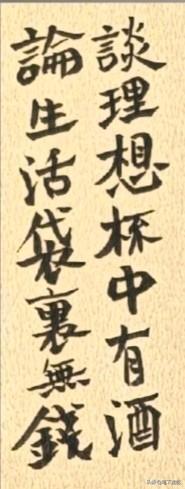 談理想杯中有酒
論生活袋裏無錢